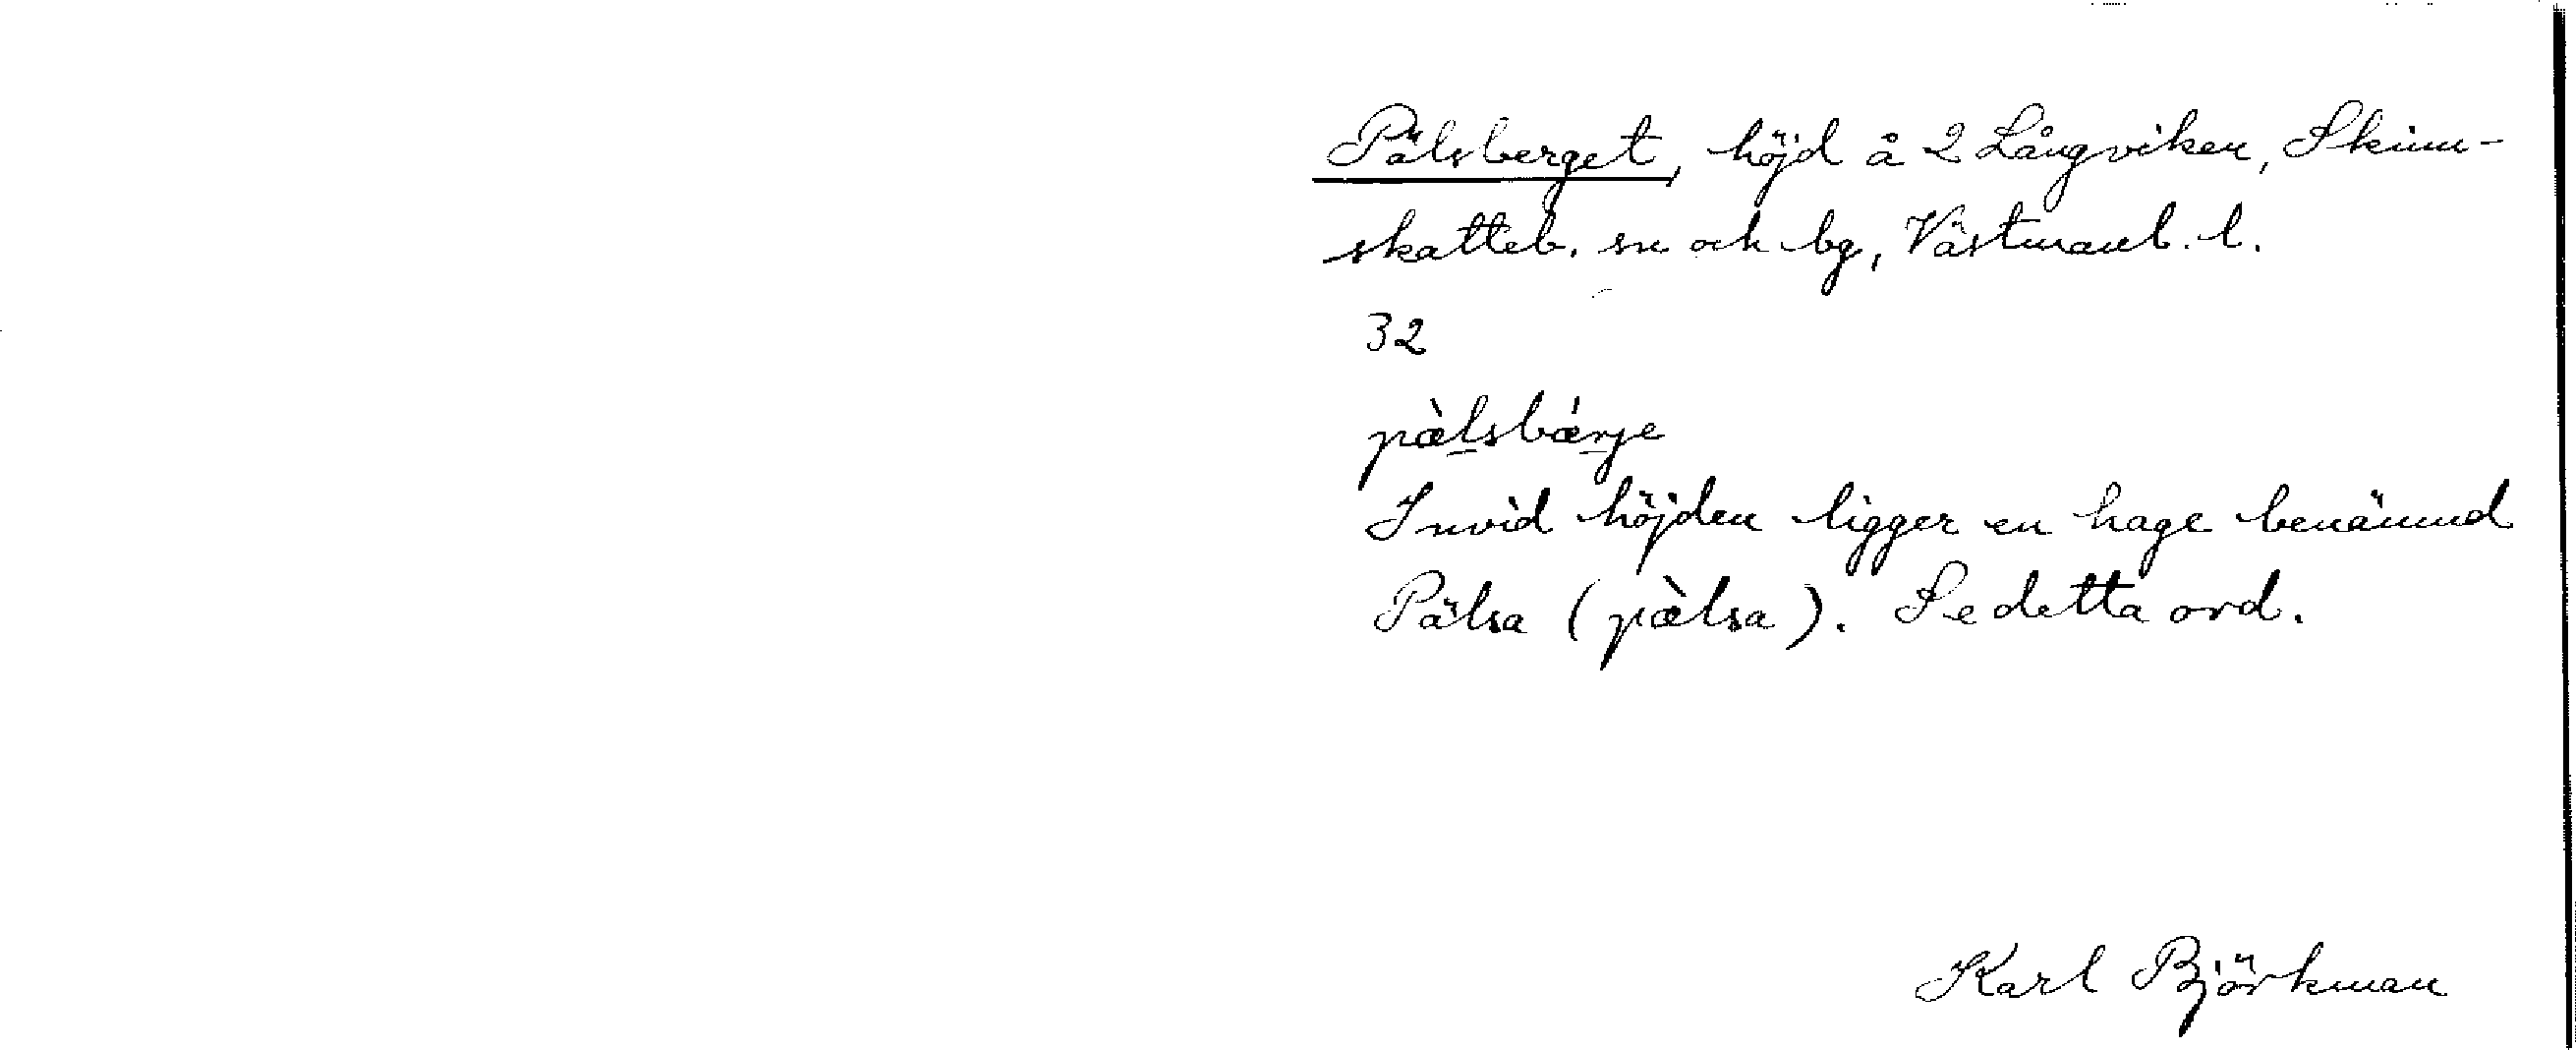 Pälsberget, höjd å 2 Långviken, Skinn-
skatteb. sn och bg, Västmanl. l.
32
pæ̀lsbǽrje
Invid höjden ligger en hage benämnd
Pälsa (pæ̀lsa). Se detta ord.
Karl Björkman